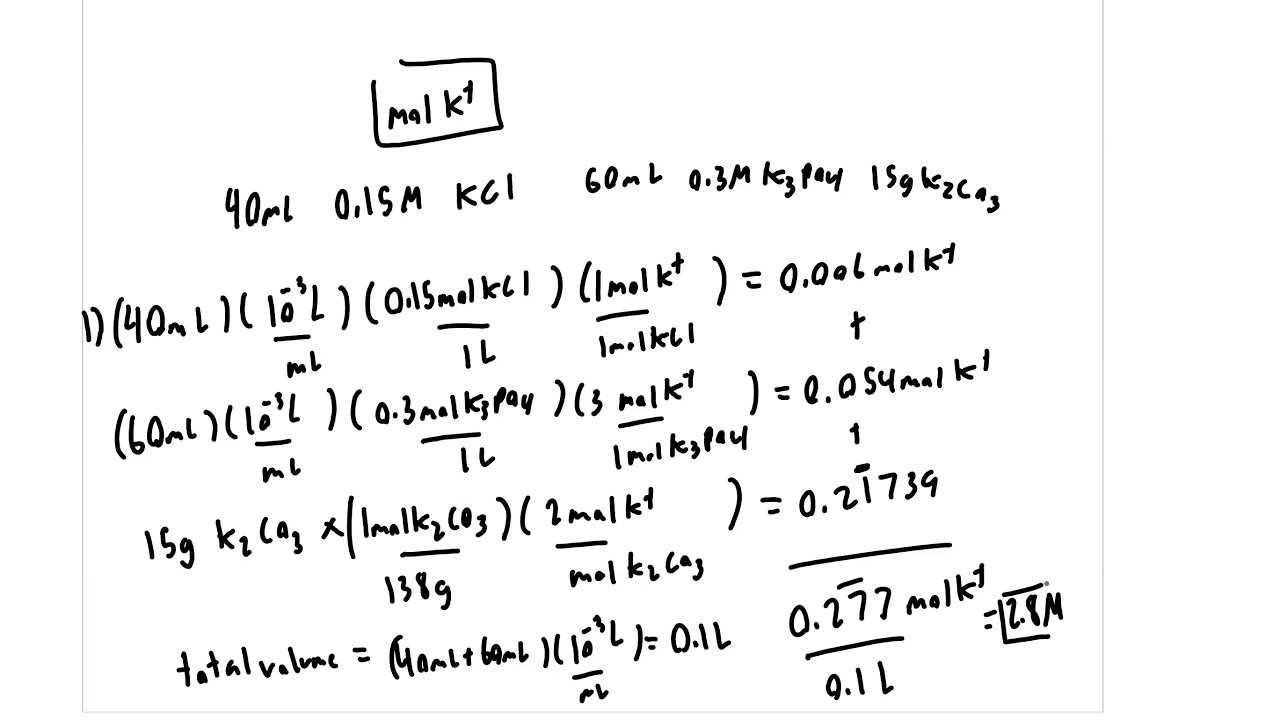 mol K⁺
40mL 0.15M KCl 60mL 0.3M K₃PO4 15g K₂CO₃
1) (40mL)(10⁻³L/mL)(0.15molKCl/1L)(1molK⁺/1molKCl) = 0.006molK⁺
+
(60mL)(10⁻³L/mL)(0.3molK₃PO4/1L)(3molK⁺/1molK₃PO4) = 0.054molK⁺
+
15g K₂CO₃ ×(1molK₂CO₃/138g)(2molK⁺/molK₂CO₃) = 0.21̅739
total volume = (40mL+60mL)(10⁻³L/mL)= 0.1L 0.27̅7 molK⁺/0.1L = 2.8M